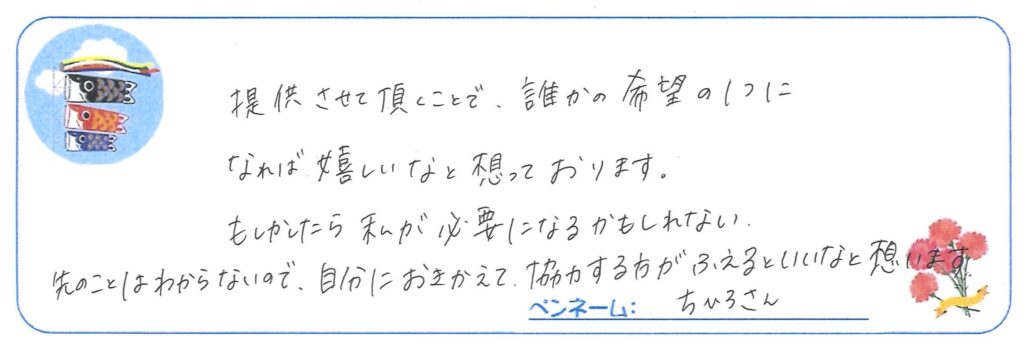 提供させて頂くことで、誰かの希望の1つに
なれば嬉しいなと想っております。
もしかしたら私が必要になるかもしれない.
先のことはわからないので、自分におきかえて、協力する方がふえるといいなと想います
ペンネーム: ちひろさん